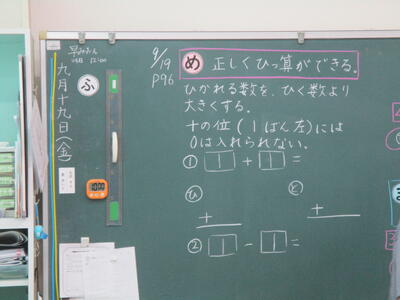 早みみん
12:00
九月十九日(金)
ふ
9/19
P96
め 正しくひっ算ができる。
ひかれる数を、ひく数より
大きくする。
十の位(1ばん左)には
0は入れられない。
① □ + □ =
ひ と
+ +
② □ - □ =